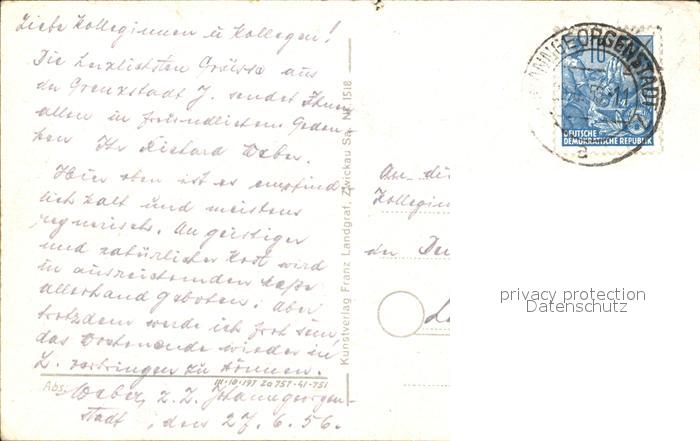 Liebe Kolleginnen u Kollegen!
Die herzlichsten Grüsse aus
der Grenzstadt J. sendet Ihnen
allen in freundlichem Geden-
ken Ihr Richard Weber.
Hier oben ist es empfind-
lich kalt und meistens
regnerisch. An geistiger
und natürlicher Kost wird
in ausreichendem Maße
allerhand geboten. Aber
trotzdem werde ich froh sein,
das Wochenende wieder in
L. verbringen zu können.
III-10-197 Za 757-41-751
Abs: Weber, z. Z. Johanngeorgen-
stadt, den 27. 6. 56.
Kunstverlag Franz Landgraf, Zwickau Sa. Nr. 1518
JOHANNGEORGENSTADT
10
DEUTSCHE
DEMOKRATISCHE REPUBLIK
a
An die
Kollegin
der
privacy protection
Datenschutz